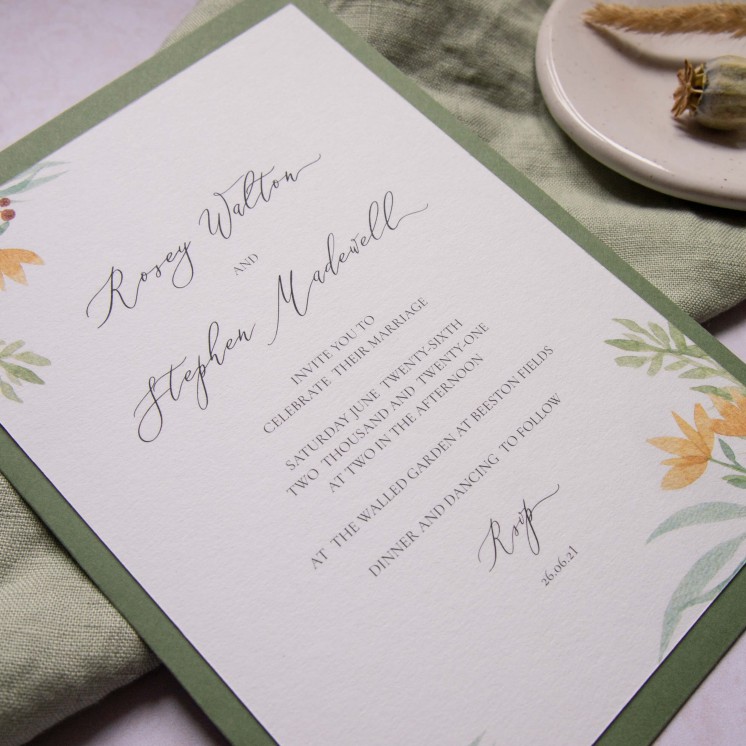 Rosey Walton
AND
Stephen Madewell
INVITE YOU TO
CELEBRATE THEIR MARRIAGE
SATURDAY JUNE TWENTY-SIXTH
TWO THOUSAND AND TWENTY-ONE
AT TWO IN THE AFTERNOON
AT THE WALLED GARDEN AT BEESTON FIELDS
DINNER AND DANCING TO FOLLOW
Rsvp
26.06.21